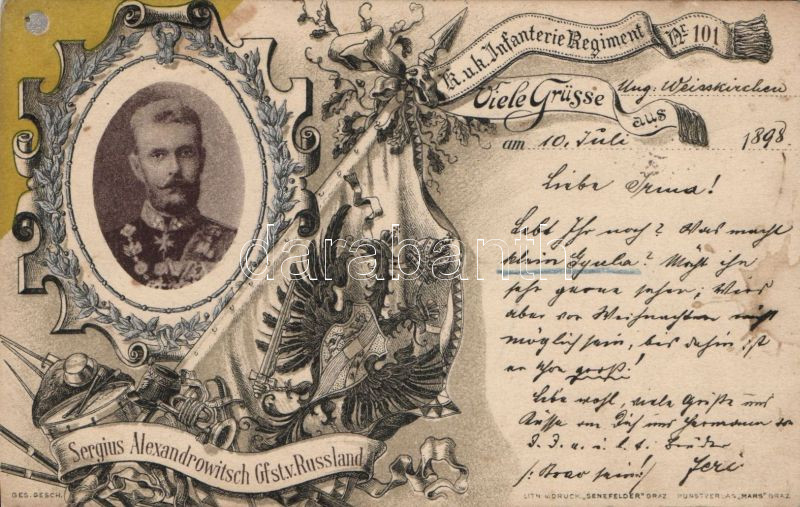 K.u.k. Infanterie Regiment No 101
Viele Grüsse aus Ung: Weisskirchen
am 10. Juli 1898
Liebe Irma!
Lebt Ihr noch? Was macht
klein Gyula? Möcht ihn
sehr gerne sehen; Wird
aber vor Weihnachten nicht
möglich sein, bis dahin ist
er schon groß!
Lebe wohl, viele Grüße und
Küsse an Dich und Hermann
Bruder
Feri
darabanth
Sergius Alexandrowitsch Gfst.v.Russland
GES. GESCH.
LITH. u. DRUCK „SENEFELDER" GRAZ KUNSTVERLAG „MARS" GRAZ